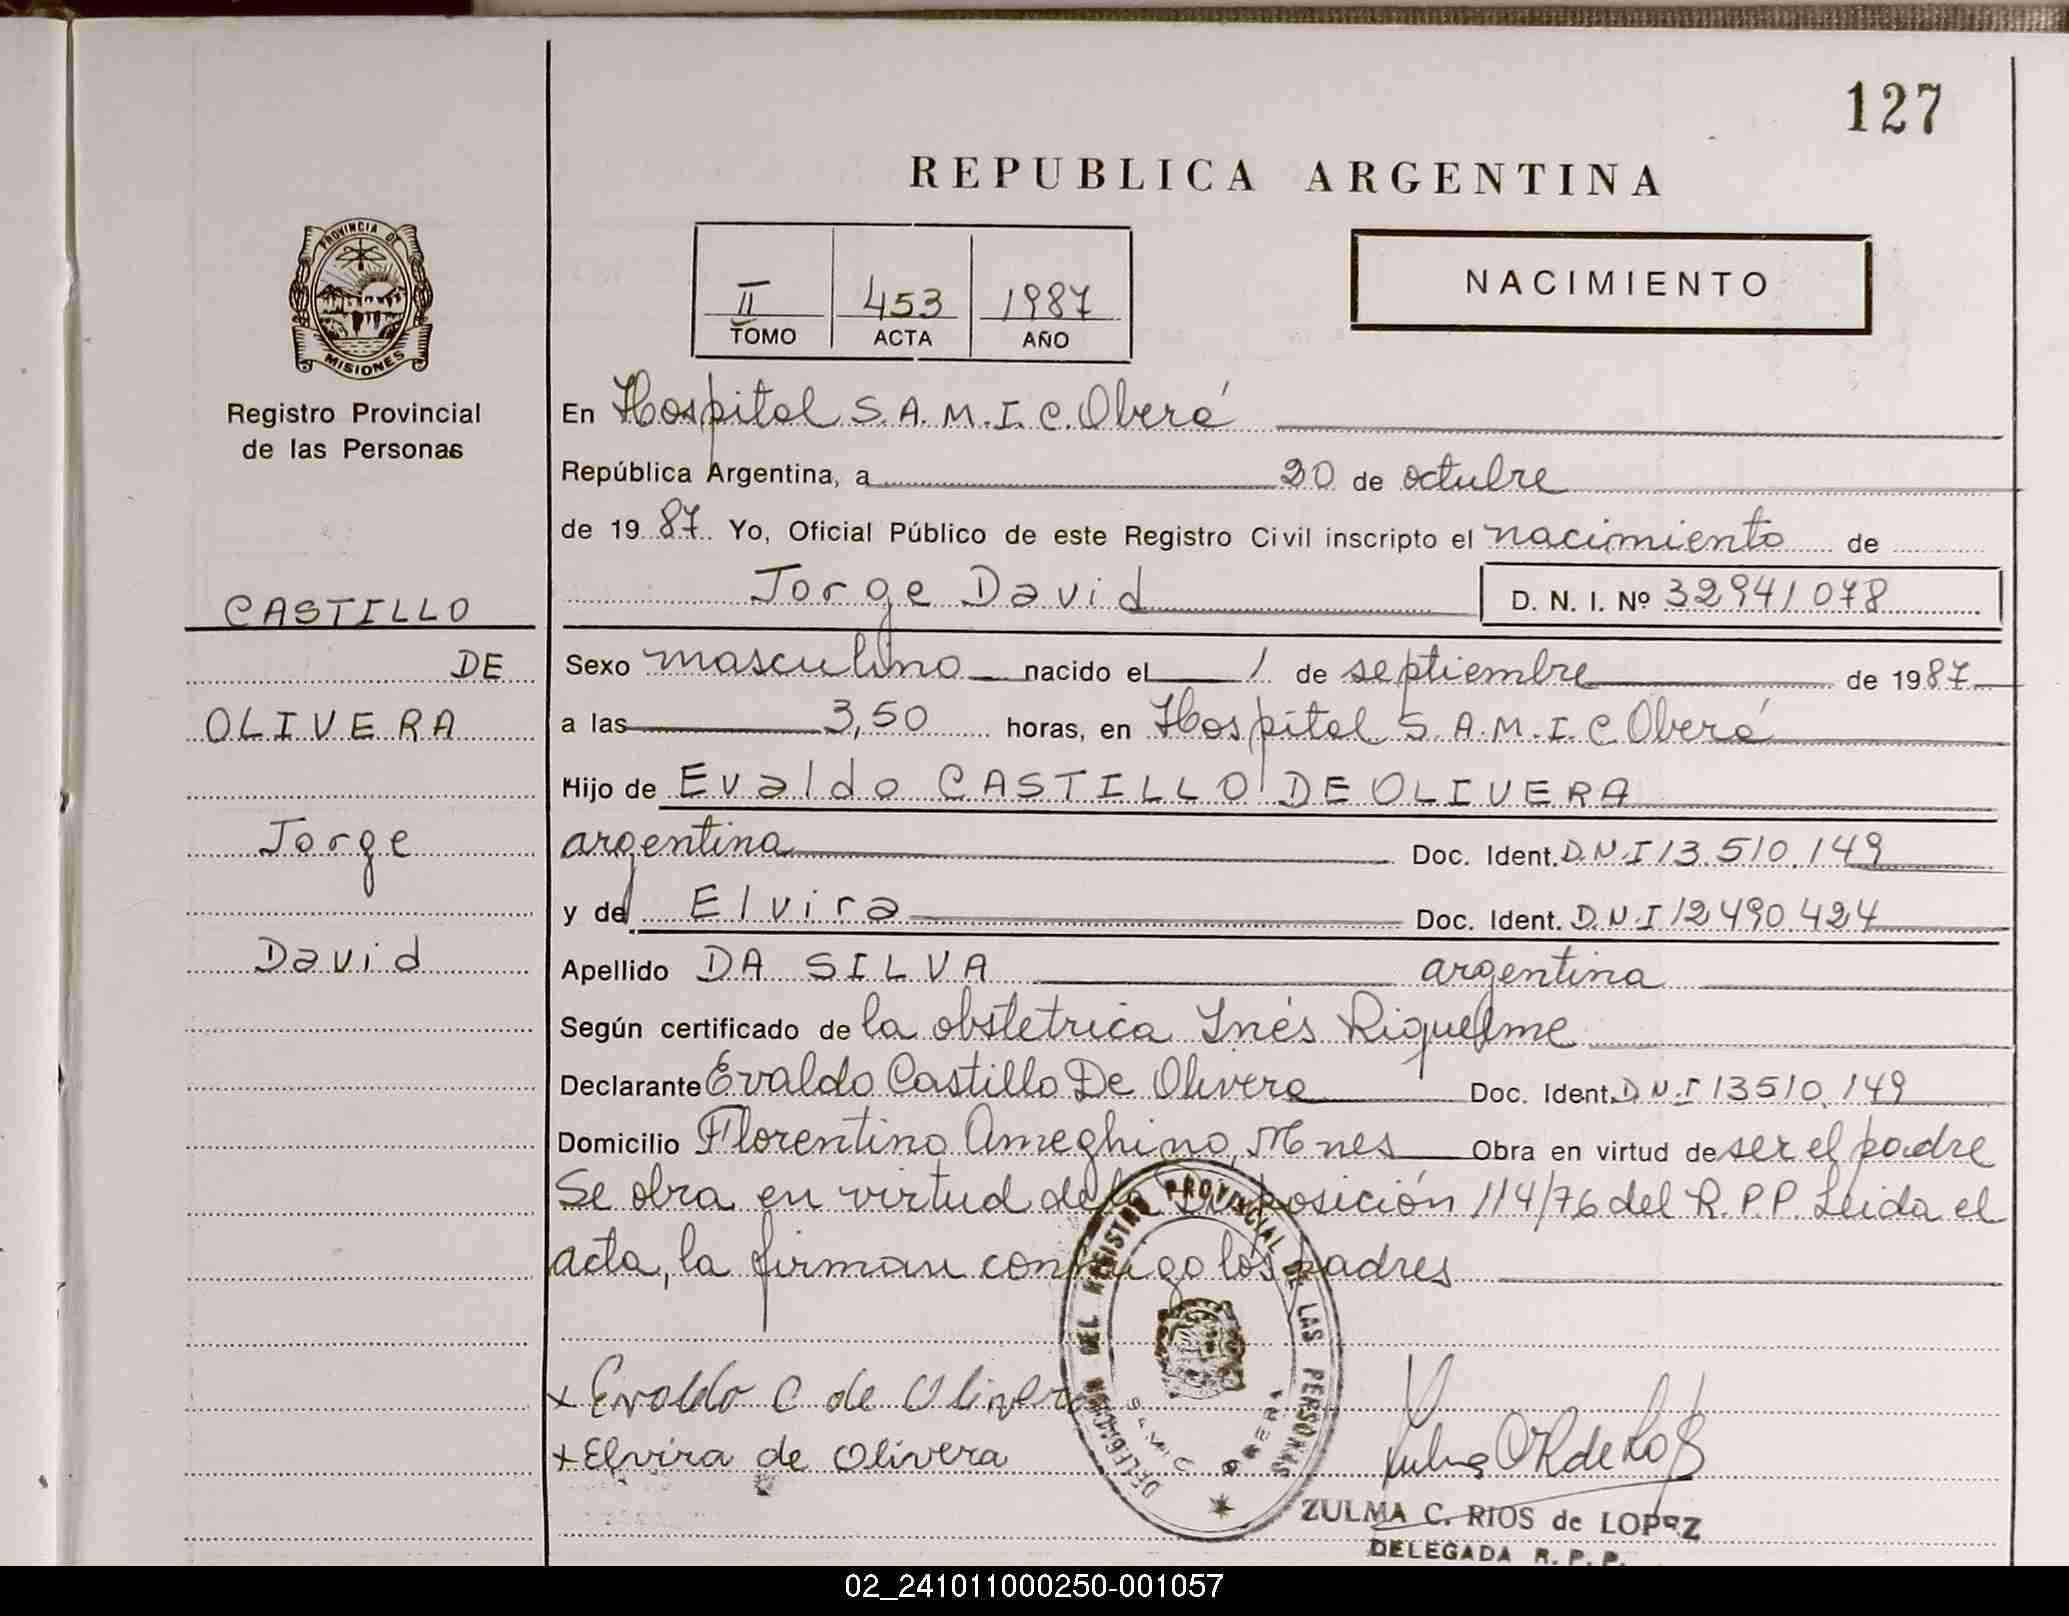 127
REPUBLICA ARGENTINA
PROVINCIA DE
MISIONES
Registro Provincial
de las Personas
II 453 1987
TOMO ACTA AÑO
NACIMIENTO
En Hospital S.A.M.I.C. Oberá
República Argentina, a 20 de octubre
de 1987. Yo, Oficial Público de este Registro Civil inscripto el nacimiento de
Jorge David D. N. I. Nº 32941078
CASTILLO
DE
OLIVERA
Jorge
David
Sexo masculino nacido el 1 de septiembre de 1987
a las 3,50 horas, en Hospital S.A.M.I.C Oberá
Hijo de Evaldo CASTILLO DE OLIVERA
argentina Doc. Ident. D.N.I 13.510.149
y de Elvira Doc. Ident. D.N.I 12490.424
Apellido DA SILVA argentina
Según certificado de la obstetrica Inés Riquelme
Declarante Evaldo Castillo De Olivera Doc. Ident. D.N.I 13510.149
Domicilio Florentino Ameghino, Mnes Obra en virtud de ser el padre
Se obra en virtud de la Disposición 114/76 del R.P.P. Leida el
acta, la firman conmigo los padres
x Evaldo C de Olivera
x Elvira de Olivera
DELEGACION DEL REGISTRO PROVINCIAL DE LAS PERSONAS
SAMIC OBERA
ZULMA C. RIOS de LOPEZ
DELEGADA R. P. P.
02_241011000250-001057